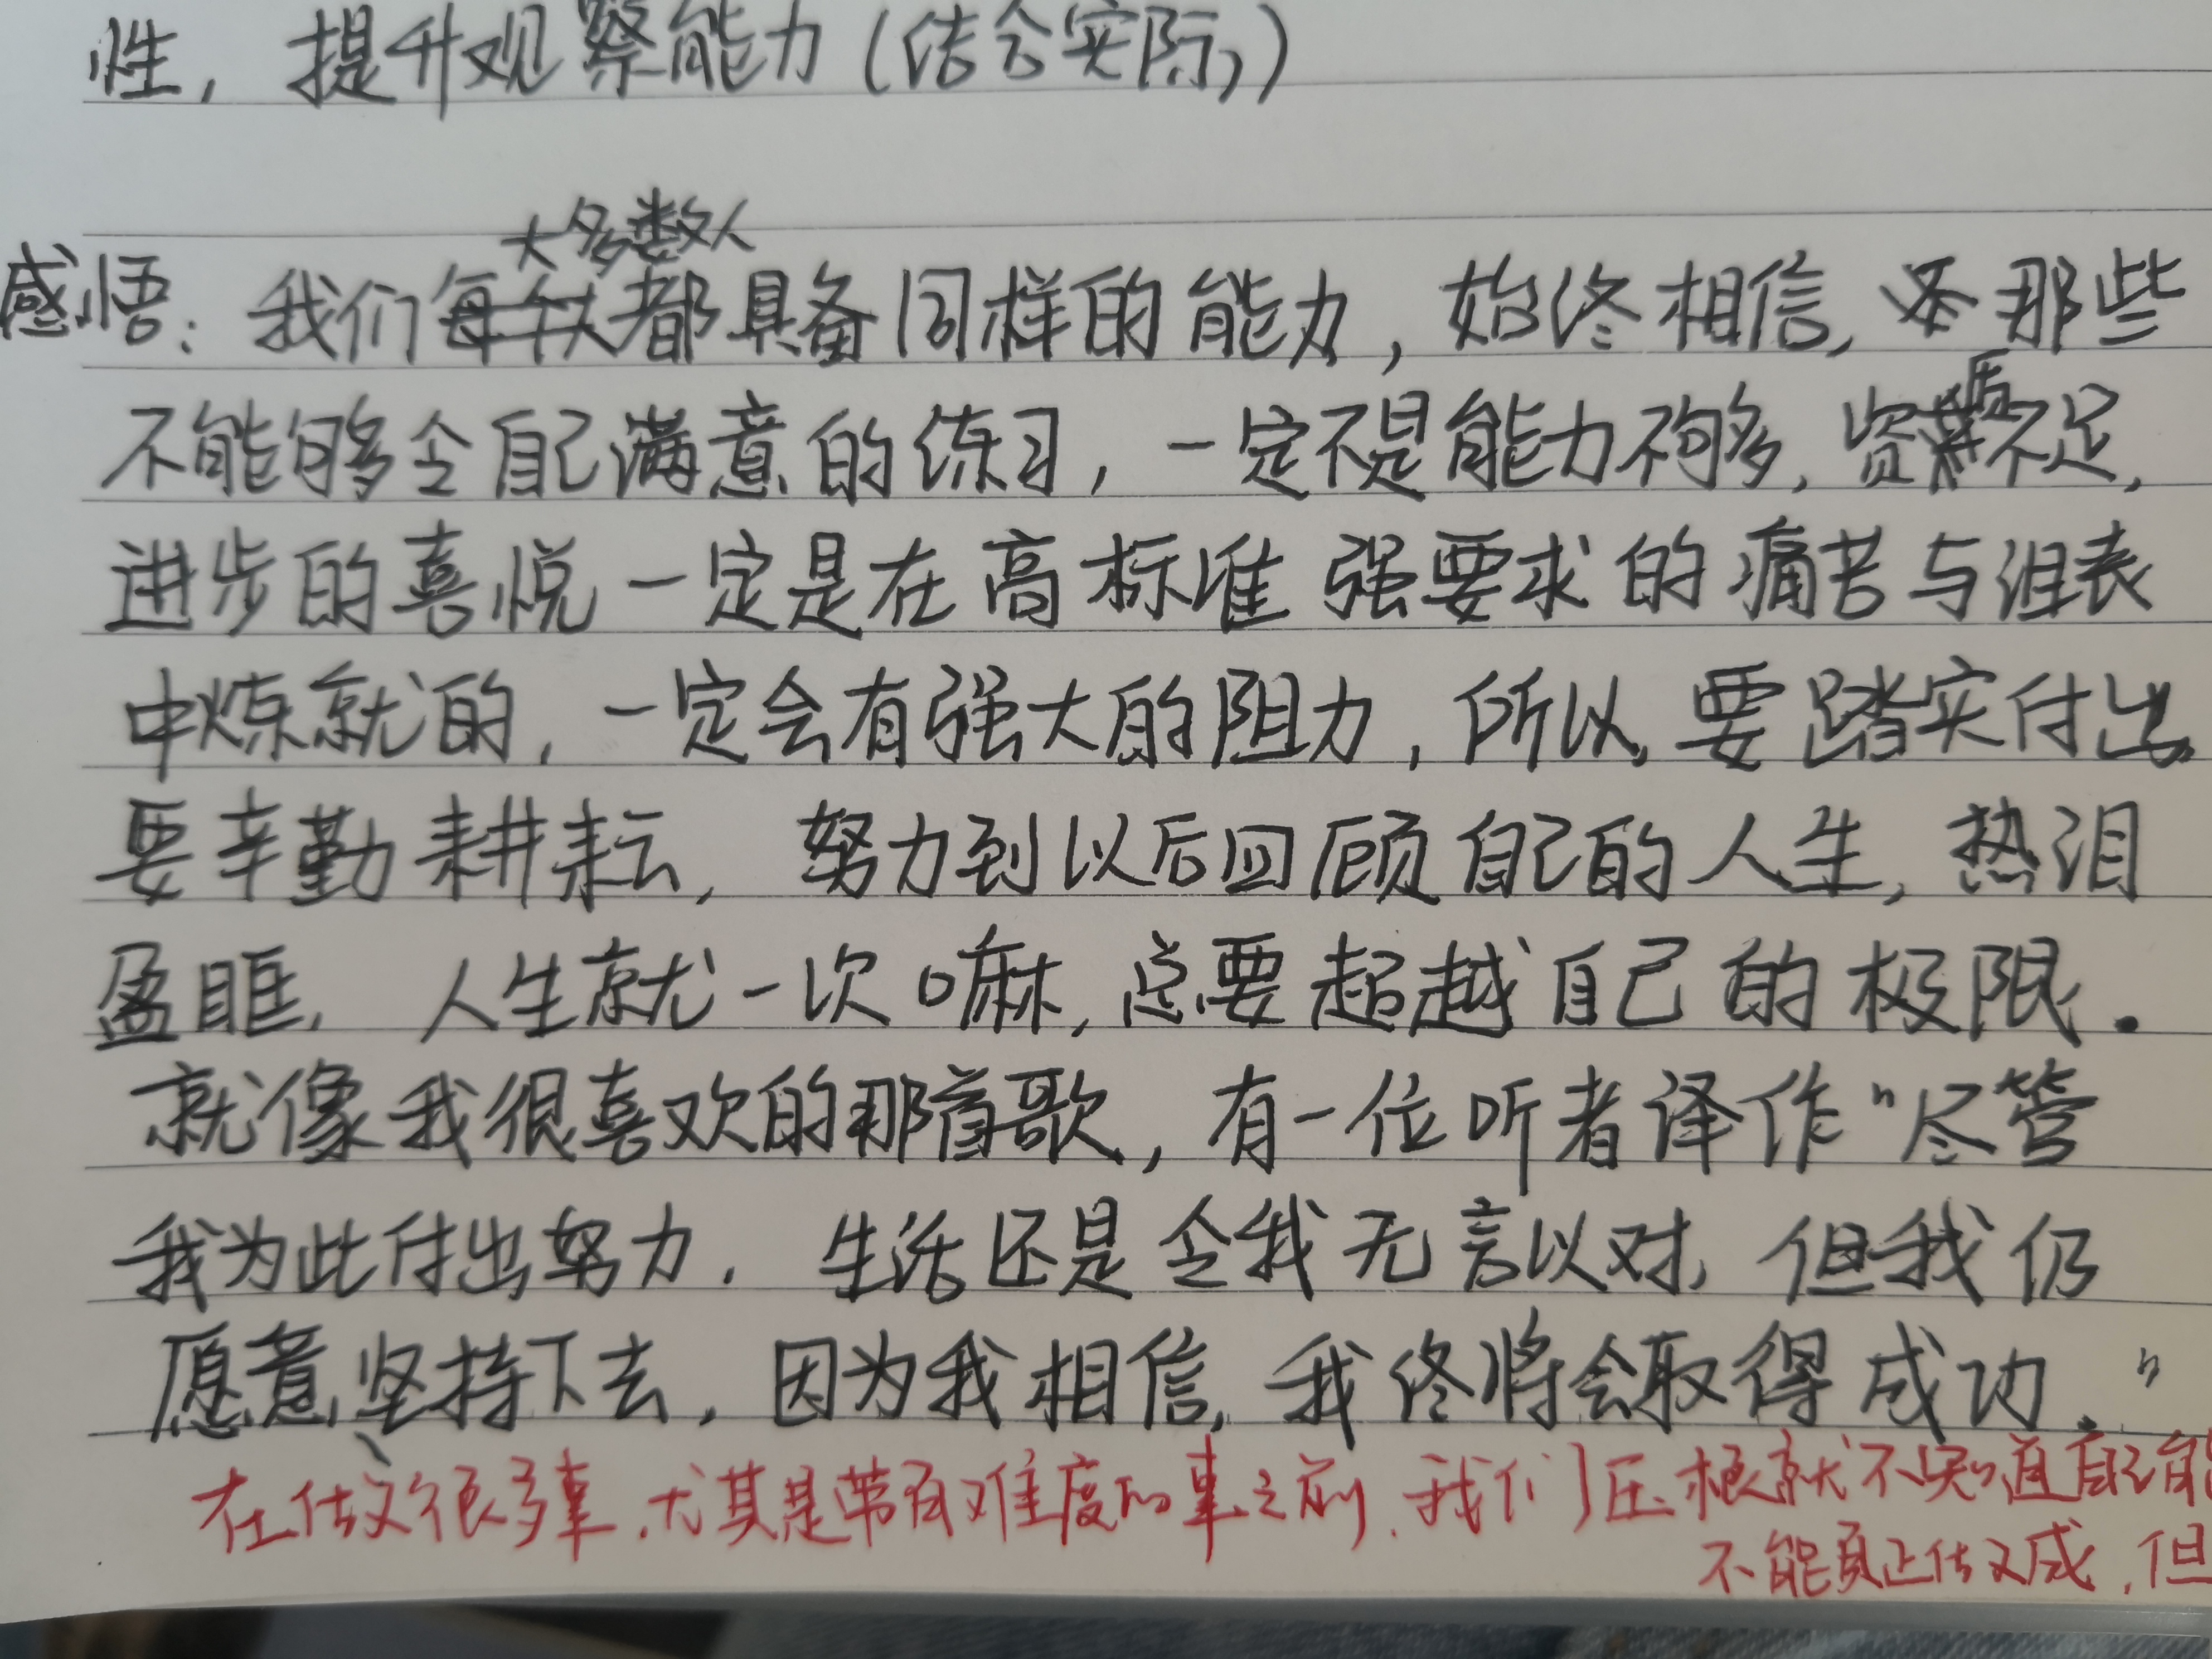 性，提升观察能力（结合实际，）
大多数人
感悟：我们都具备同样的能力，始终相信，那些
不能够令自己满意的练习，一定不是能力不够，资质不足，
进步的喜悦一定是在高标准 强要求的痛苦与沮丧
中炼就的，一定会有强大的阻力，所以，要踏实付出，
要辛勤耕耘，努力到以后回顾自己的人生，热泪
盈眶，人生就一次嘛，总要超越自己的极限．
就像我很喜欢的那首歌，有一位听者译作“尽管
我为此付出努力．生活还是令我无言以对，但我仍
愿意、坚持下去，因为我相信，我终将会取得成功．”
在做很多事，尤其是带有难度的事之前，我们压根就不知道自己能
不能真正做成，但